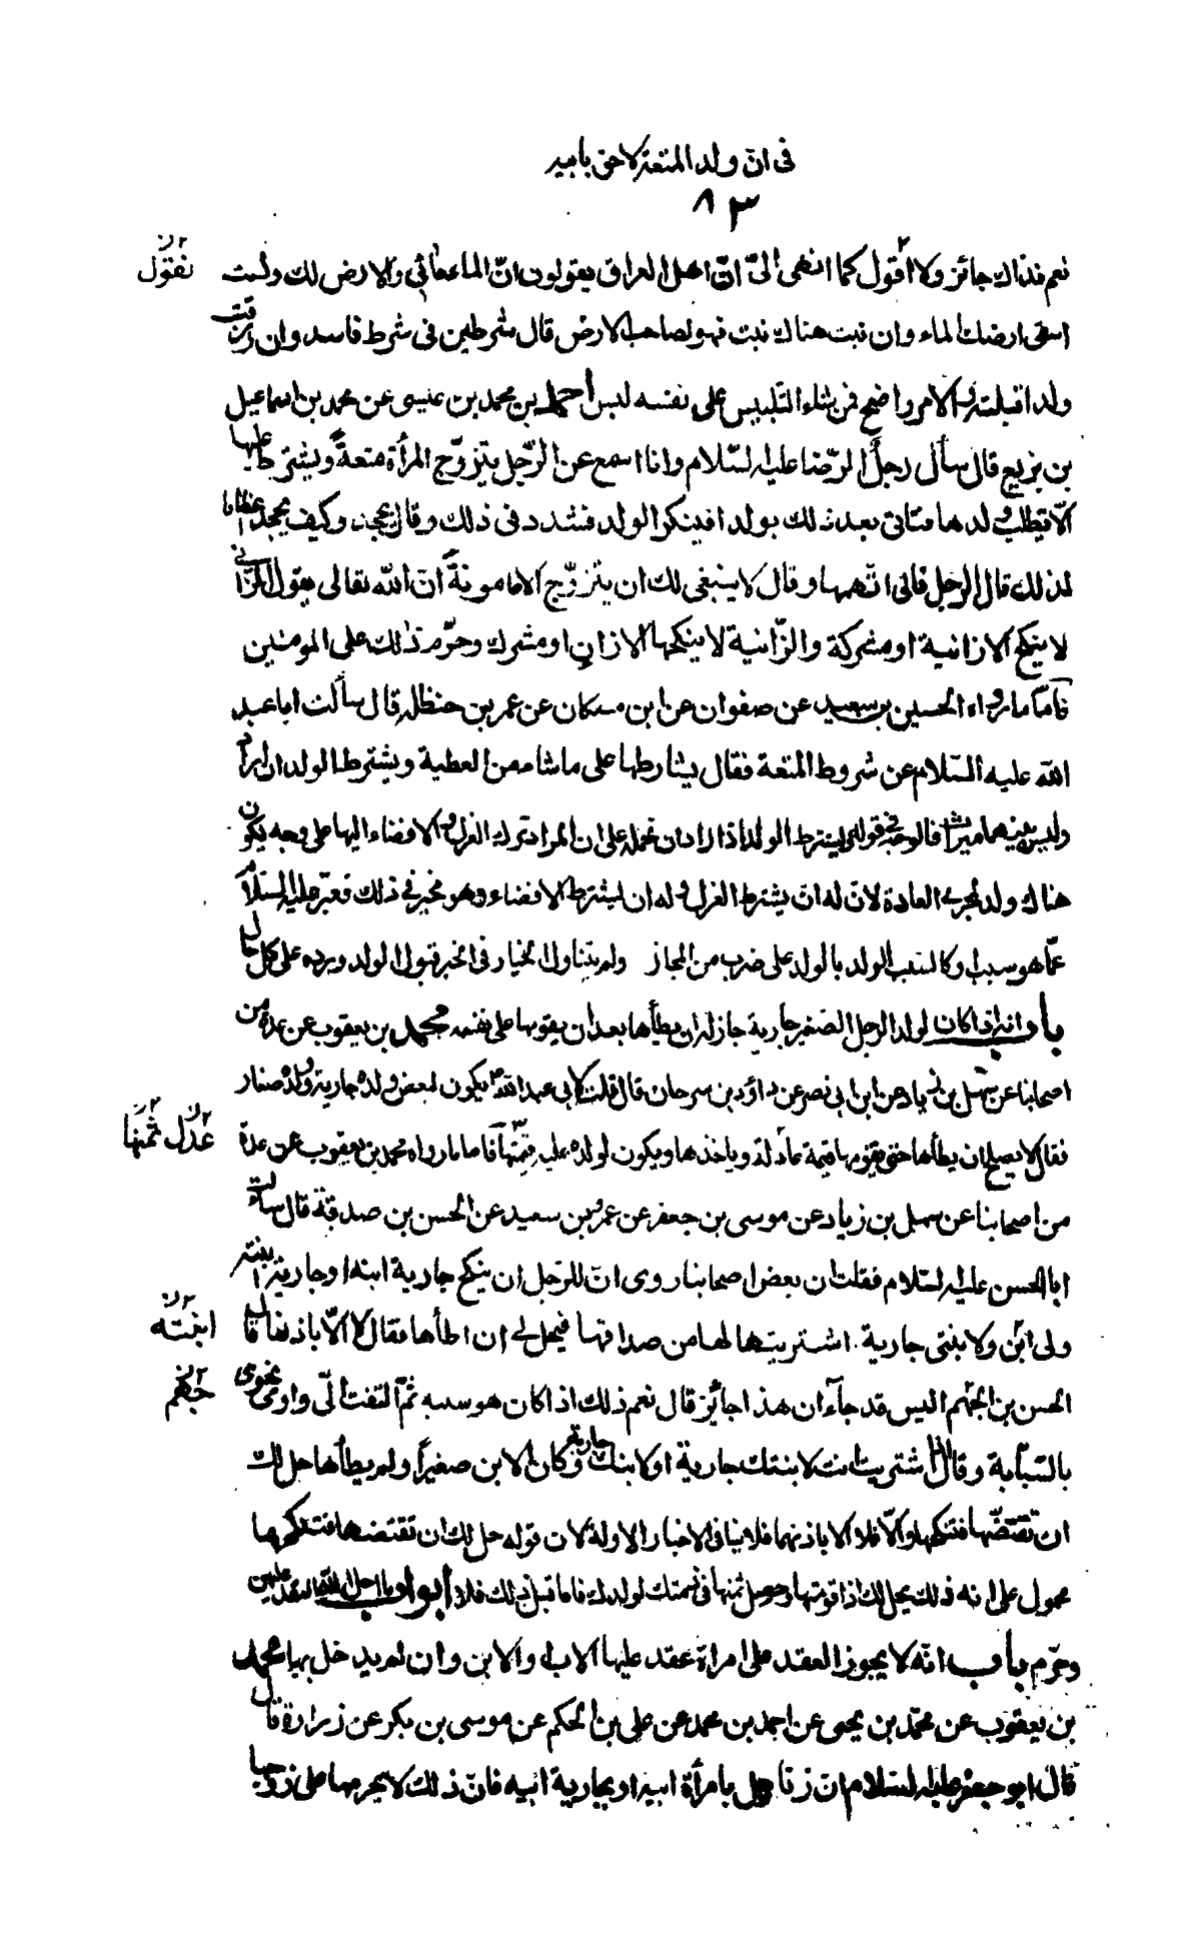 فى ان ولد المتعة لاحق بابيه
٨٣
نعم فذاك جائز ولا اقول كما انهى الىّ انّ اهل العراق يقولون انّ الماء مائى والارض لك ولست
نقول
اسقى ارضك الماء وان نبت هناك نبت فهو لصاحب الارض قال شرطين فى شرط فاسد وان رزقت
ولدا قبلته والامر واضح فمن شاء التلبيس على نفسه لبس احمد بن محمد بن عيسى عن محمد بن اسماعيل
بن بزيع قال سأل رجل الرّضا عليه السّلام وانا اسمع عن الرّجل يتزوّج المرأة متعةً ويشترط عليها
الّا يطلب ولدها فتاتى بعد ذلك بولد افينكر الولد فشدد فى ذلك وقال يجحد وكيف يجحد اعظاما
لذلك قال الرجل فانى اتّهمها وقال لا ينبغى لك ان يتزوّج الا مامونةً انّ اللّه تعالى يقول الزّانى
لا ينكح الا زانية او مشركة والزّانية لا ينكحها الا زانٍ او مشرك وحرّم ذلك على المومنين
فامّا ما رواه الحسين بن سعيد عن صفوان عن ابن مسكان عن عمر بن حنظله قال سألت ابا عبد
اللّه عليه السّلام عن شروط المتعة فقال يشارطها على ما شاء من العطية ويشترط الولد ان اراد
وليس بينهما ميراث فالوجه فى قوله يشترط الولد اذا اراد ان نحمله على ان المراد ترك العزل والافضاء اليها على وجه يكون
هناك ولد لمجرى العادة لان له ان يشترط العزل وله ان يشترط الافضاء وهو مخير فى ذلك فعبّر عليه السّلام
عمّا هو سبب او كالسبب الولد بالولد على ضرب من المجاز ولم يتناول الخيار فى الخبر قبول الولد ورده على كل حال
باب انه اذا كان لولد الرجل الصغير جارية جاز له ان يطأها بعد ان يقومها على نفسه محمد بن يعقوب عن عدة من
اصحابنا عن سهل بن زياد عن ابن ابى نصر عن داؤد بن سرحان قال قلت لابى عبد اللّه يكون لبعض ولده جارية وولده صغار
فقال لا يصلح ان يطأها حتى يقومها قيمة عادلة وياخذها ويكون لولده عليه قيمتها فاما ما رواه محمد بن يعقوب عن عدة
عدل ثمنها
من اصحابنا عن سهل بن زياد عن موسى بن جعفر عن عمرو بن سعيد عن الحسن بن صدقة قال سالت
ابا الحسن عليه السّلام فقلت ان بعض اصحابنا روى انّ للرّجل ان ينكح جارية ابنه او جارية ابنته
ولى ابن ولابنتى جارية اشتريتها لها من صداقها فيحل لى ان اطأها فقال لا الّا باذنها قال
ابنته
الحسن بن الجهم اليس قد جآء ان هذا جائز قال نعم ذلك اذا كان هو سببه ثمّ التفت الىّ واومى نحوى
جهم
بالسّبابة وقال اذا اشتريت انت لابنتك جارية او لابنك جارية وكان الابن صغيرًا ولم يطأها حل لك
ان تقتضّها فتنكحها والّا فلا الا باذنهما فلا ينافى الاخبار الاولة لان قوله حل لك ان تقتضها فتنكحها
محمول على انه ذلك يحل لك اذا قومتها وحصل ثمنها فى ذمتك لولدك فاما قبل ذلك فلا ابواب ما احل اللّه العقد عليهن
وحرّم باب انّه لا يجوز العقد على امراة عقد عليها الاب او الابن وان لم يدخل بها محمد
بن يعقوب عن محمّد بن يحيى عن احمد بن محمد عن على بن الحكم عن موسى بن بكر عن زرارة قال
قال ابو جعفر عليه السّلام ان زنا رجل بامرأة ابيه او بجارية ابيه فانّ ذلك لا يحرمها على زوجها